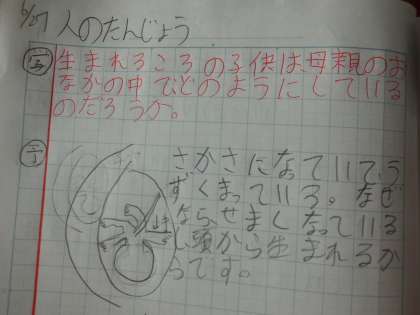 6/27 人のたんじょう
問 生まれるころの子供は、母親のお
なかの中でどのようにしている
のだろうか。
予 さかさになっていて、う
ずくまっている。なぜ
なら、せまくなっている
し、頭から生まれるか
らです。